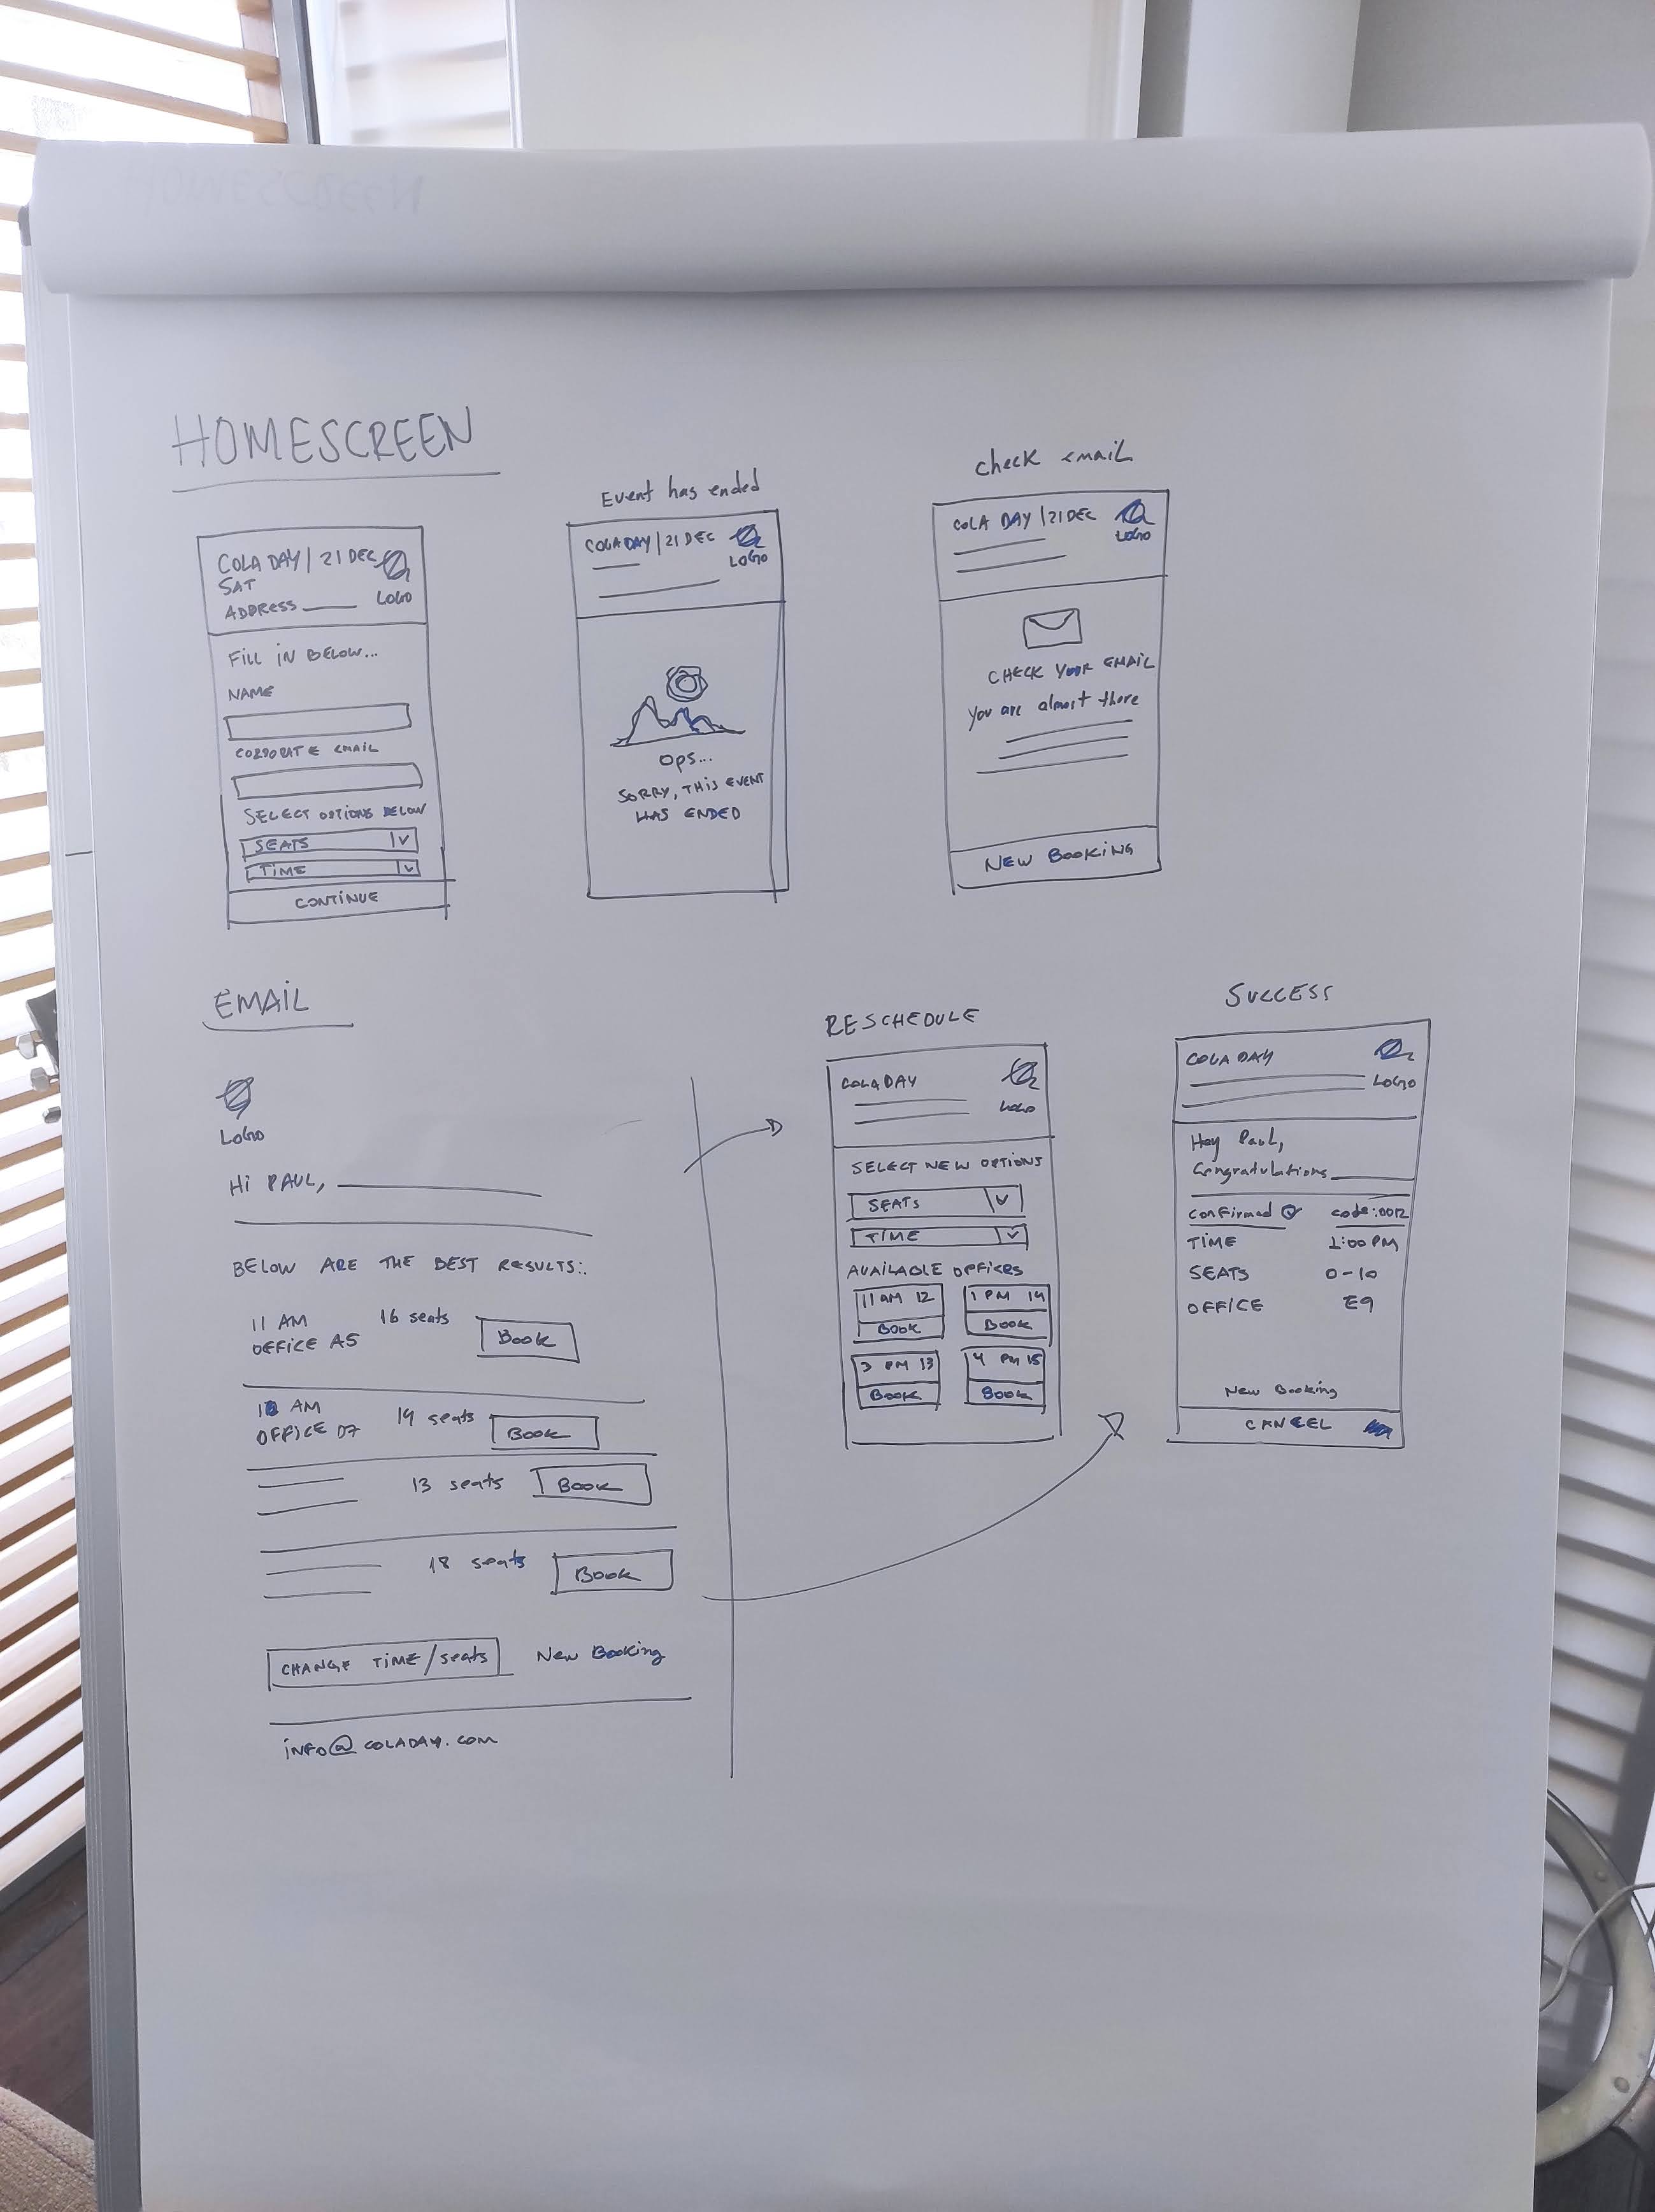 HOMESCREEN
COLA DAY | 21 DEC
SAT
ADDRESS
LOGO
FILL IN BELOW...
NAME
CORPORATE EMAIL
SELECT OPTIONS BELOW
SEATS
TIME
CONTINUE
Event has ended
COLA DAY | 21 DEC
LOGO
Ops...
SORRY, THIS EVENT
HAS ENDED
check email
COLA DAY | 21 DEC
LOGO
CHECK YOUR EMAIL
You are almost there
NEW BOOKING
EMAIL
LOGO
Hi PAUL,
BELOW ARE THE BEST RESULTS:
11 AM 16 seats
OFFICE A5 Book
AM 14 seats
OFFICE D7 Book
13 seats Book
18 seats Book
CHANGE TIME/seats New Booking
iNFO@COLADAY.COM
RESCHEDULE
COLA DAY
LOGO
SELECT NEW OPTIONS
SEATS
TIME
AVAILABLE OFFICES
11 AM 12 1 PM 14
BOOK BOOK
3 PM 13 4 PM 15
BOOK BOOK
SUCCESS
COLA DAY
LOGO
Hey Paul,
Congradulations
confirmed code:0012
TIME 1:00 PM
SEATS 0-10
OFFICE E9
New Booking
CANCEL